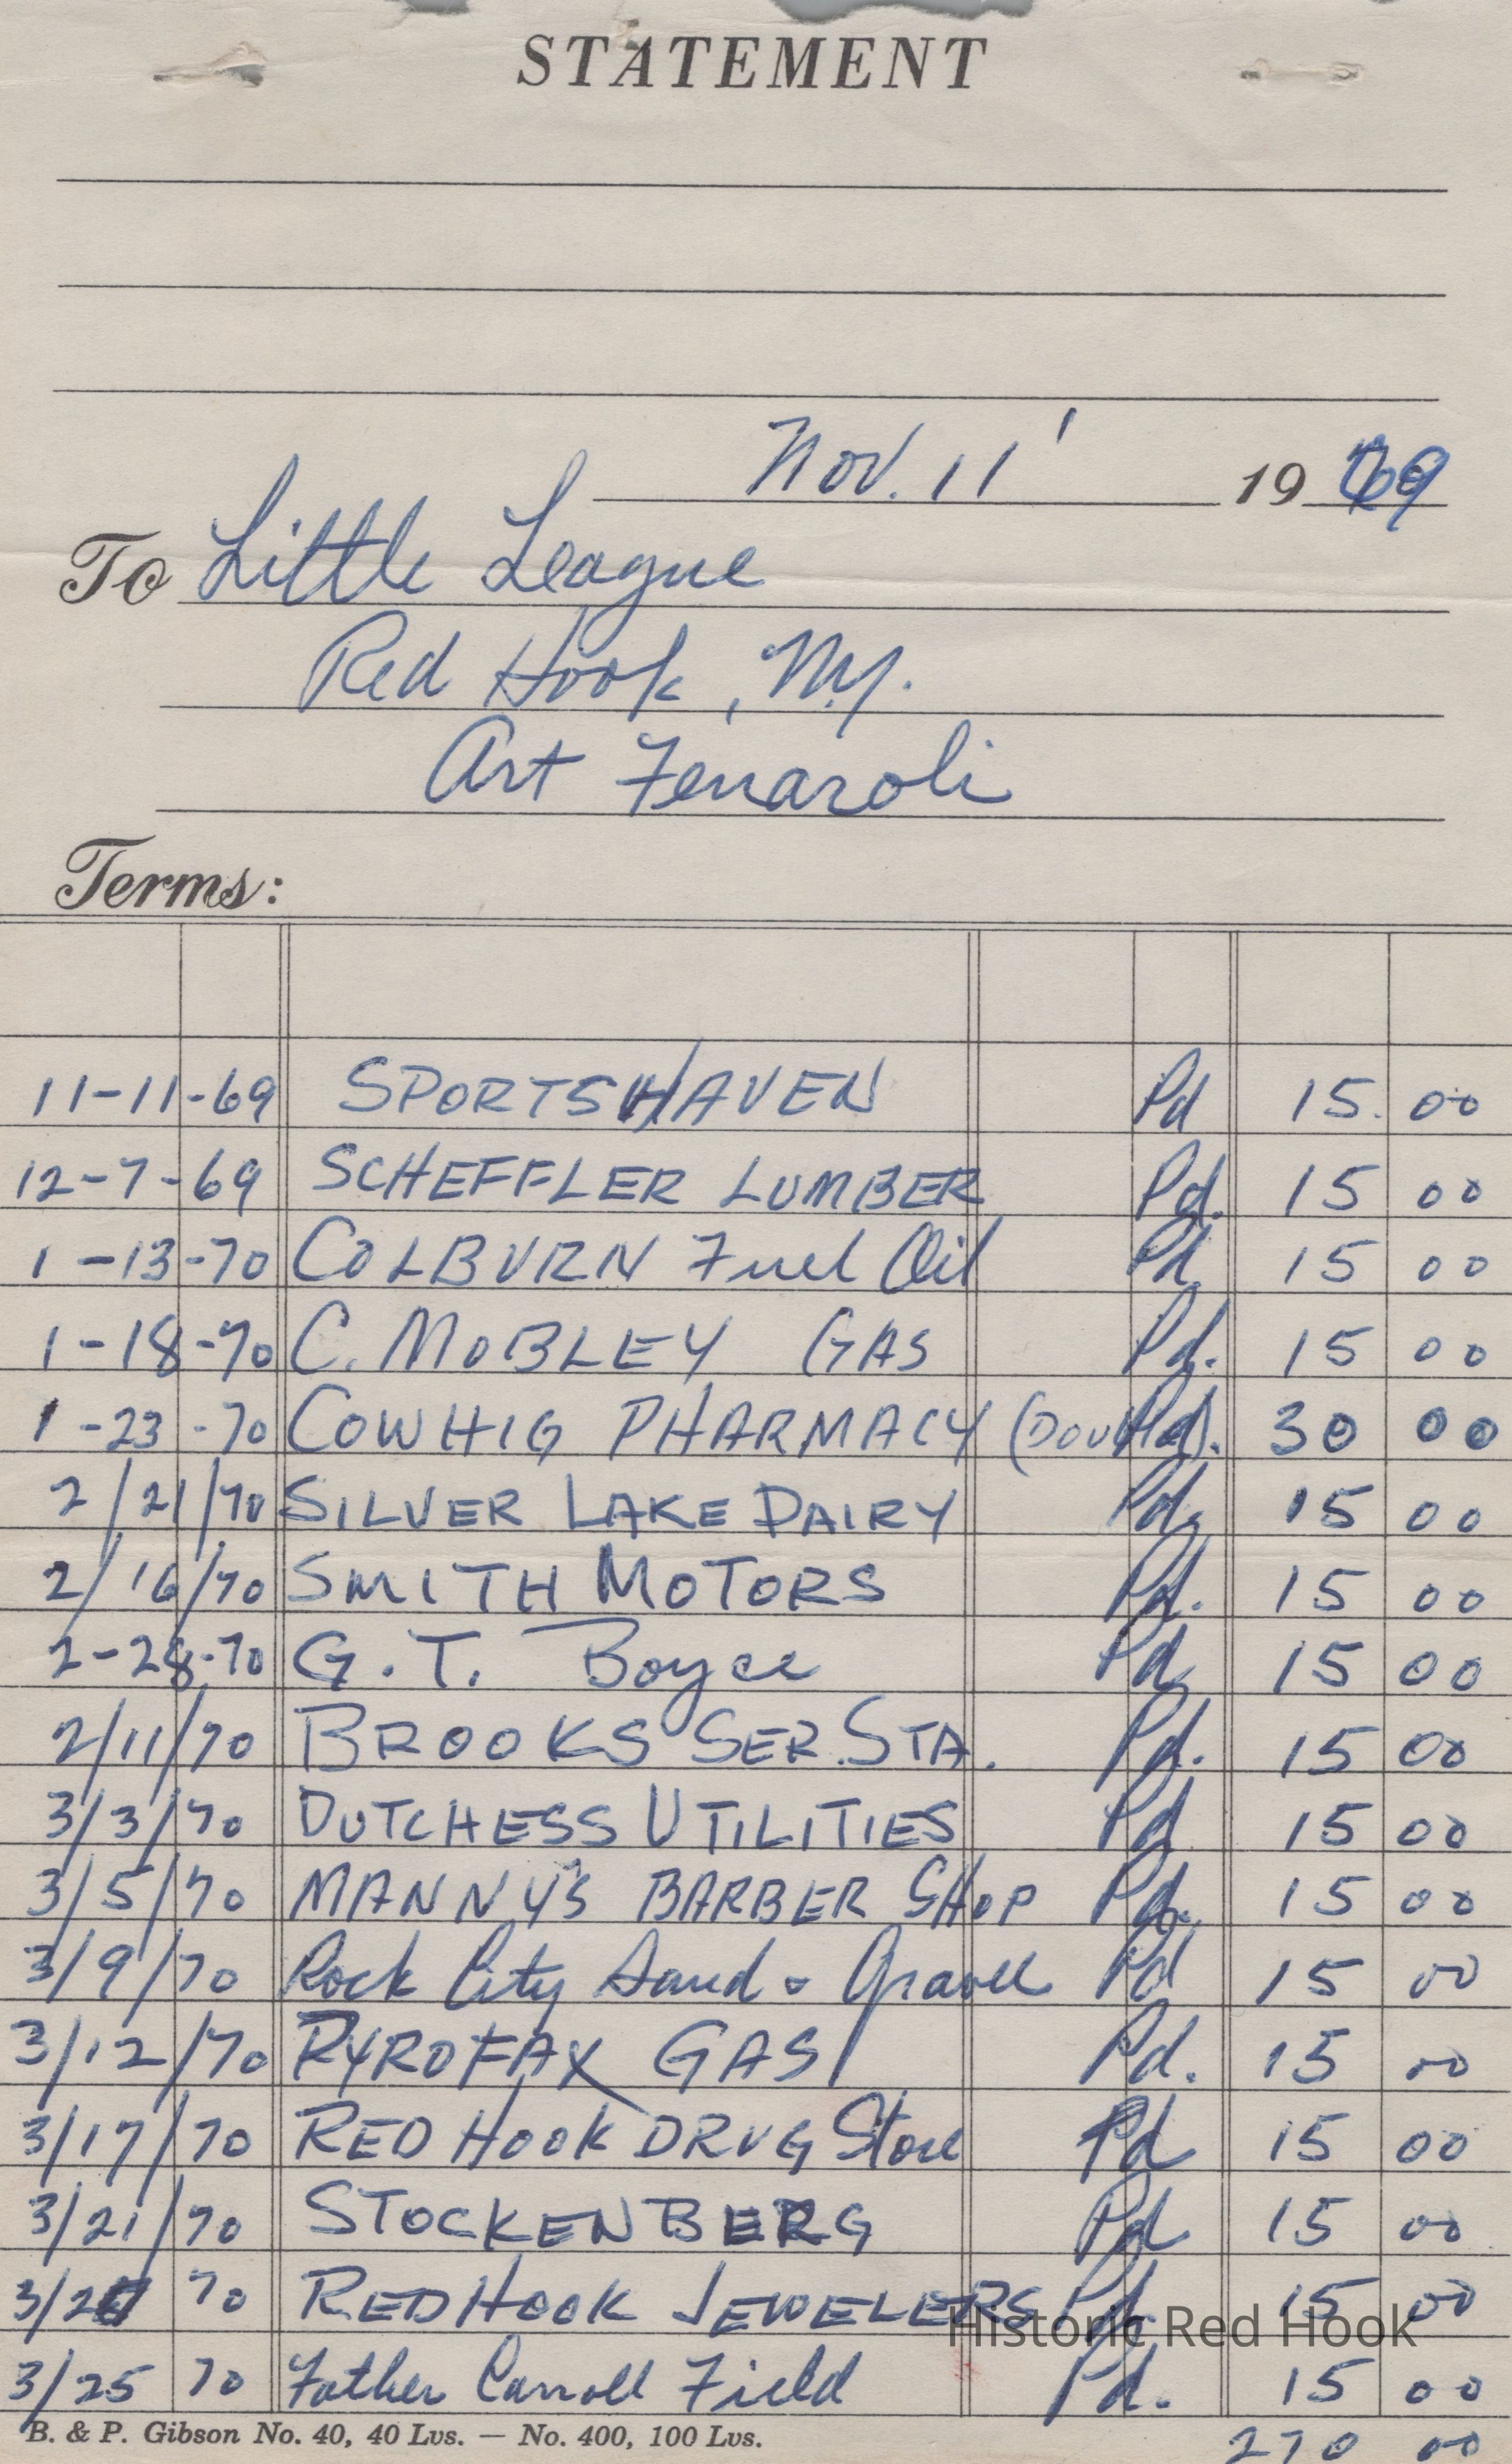 STATEMENT
Nov. 11' 19 69
To Little League
Red Hook, N.y.
Art Fenaroli
Terms:
11-11-69 SPORTSHAVEN Pd 15.00
12-7-69 SCHEFFLER LUMBER Pd. 15 00
1-13-70 COLBURN Fuel Oil Pd. 15 00
1-18-70 C. MOBLEY GAS Pd. 15 00
1-23-70 COWHIG PHARMACY Pd. 30 00
2/21/70 SILVER LAKE DAIRY Pd. 15 00
2/16/70 SMITH MOTORS Pd. 15 00
2-28-70 G.T. Boyce Pd. 15 00
2/11/70 BROOKS SER. STA. Pd. 15 00
3/3/70 DUTCHESS UTILITIES Pd 15 00
3/5/70 MANNY'S BARBER SHOP Pd. 15 00
3/9/70 Rock City Sand & Gravel Pd 15 00
3/12/70 PYROFAX GAS Pd. 15 00
3/17/70 RED HOOK DRUG Store Pd 15 00
3/21/70 STOCKENBERG Pd 15 00
70 RED HOOK JEWELERS Pd. 15 00
Historic Red Hook
3/25 70 Father Carroll Field Pd. 15 00
B. & P. Gibson No. 40, 40 Lvs. — No. 400, 100 Lvs.
270 00